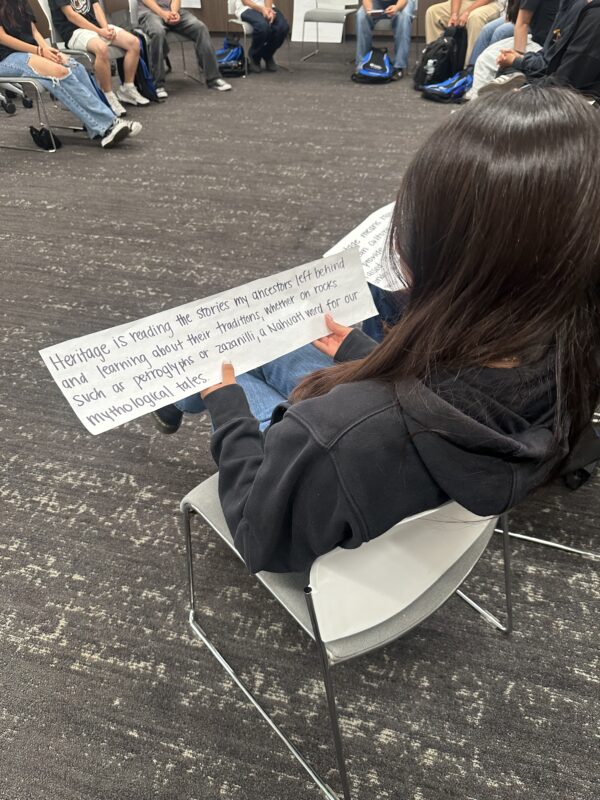 Heritage is reading the stories my ancestors left behind
and learning about their traditions, whether on rocks
such as petroglyphs or zazanilli, a Nahuatl word for our
mythological tales.
means